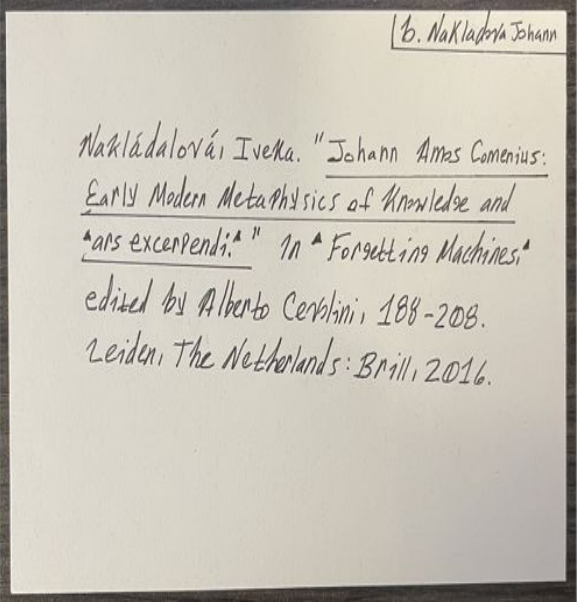 b. Nakladova Johann
Nakládalová, Iveka. "Johann Amos Comenius:
Early Modern Metaphysics of Knowledge and
"ars excerpendi." " In "Forgetting Machines,"
edited by Alberto Cevolini, 188-208.
Leiden, The Netherlands: Brill, 2016.